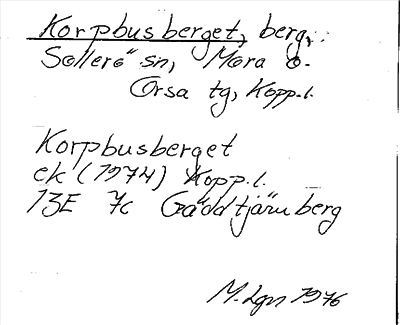 Korpbusberget, berg,
Sollerö sn, Mora o.
Orsa tg, Kopp.l.
Korpbusberget
ek (1974) Kopp.l.
13E 7c Gäddtjärnberg
M.Lgn 1976